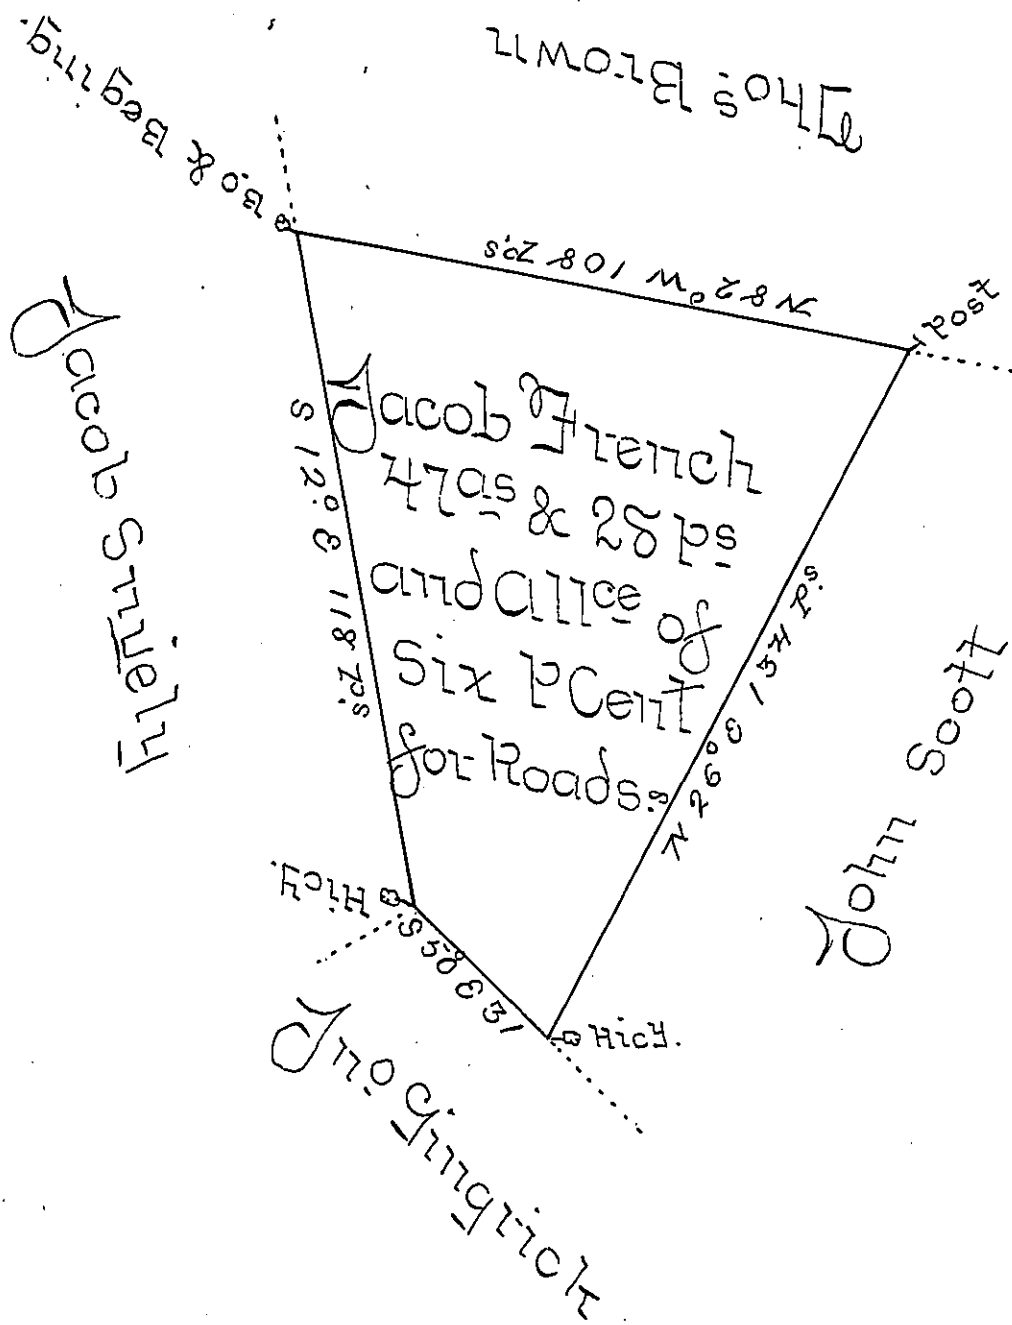 Thos. Brown
B.o & Begining.
N 82° W 108 Ps.
Post
Jacob Snively
S 12° E 118 Ps.
Jacob French
47as & 28 ps
and Allce of
Six P Cent
for Roads &s
N 26° E 134 Ps.
John Scott
Hicy.
S 58 E 31
Hicy.
Jno Gingrich